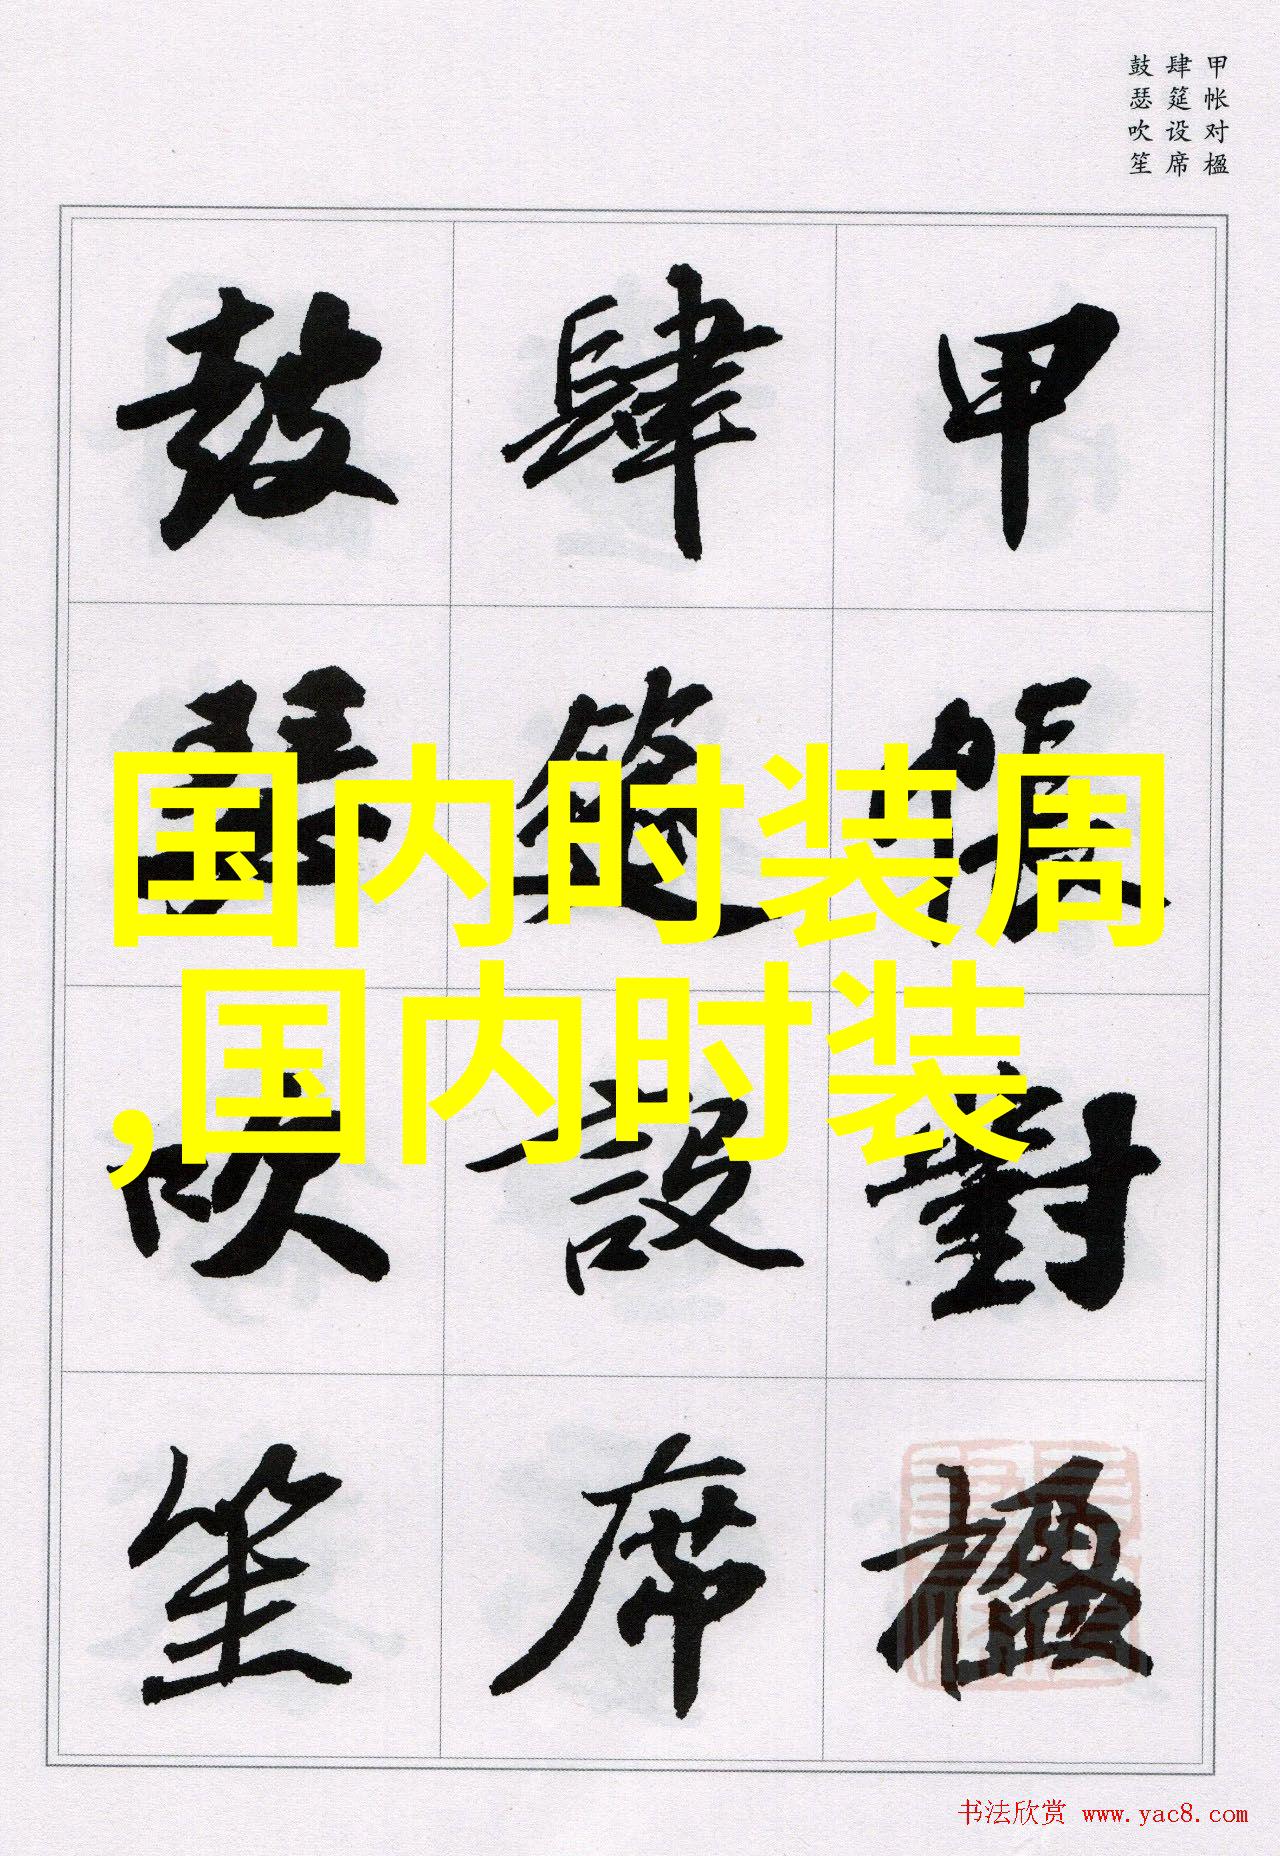 甲帐对楹
肆筵设席
鼓瑟吹笙
甲帳對楹
肆筵設席
鼓瑟吹笙
国内时装周
,国内时装
书法欣赏 www.yac8.com